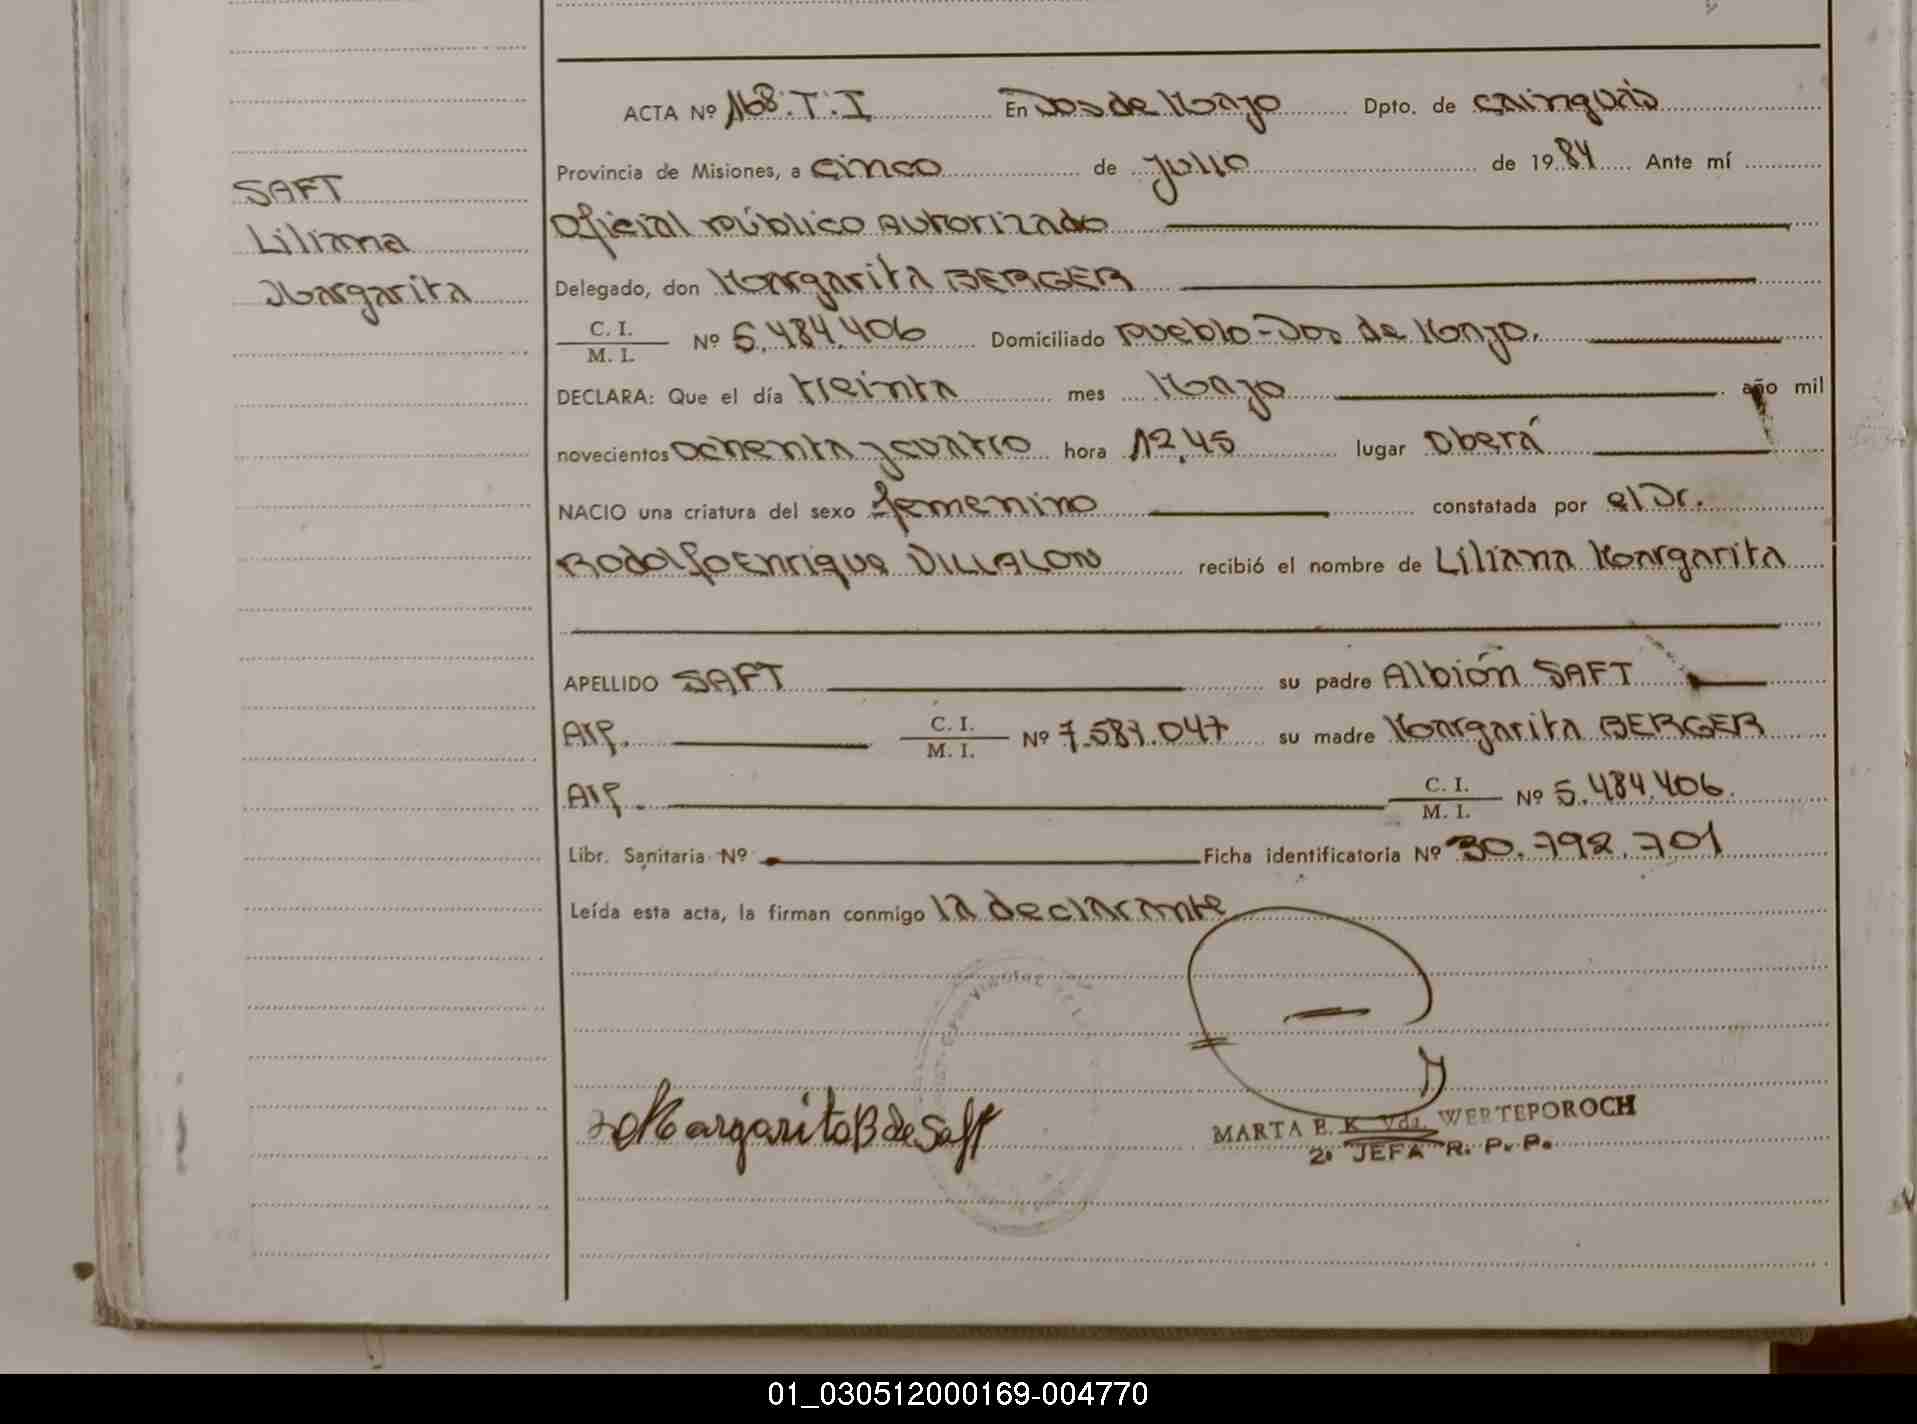 SAFT
Liliana
Margarita
ACTA Nº 168.T.I En Dos de Mayo Dpto. de Cainguás
Provincia de Misiones, a cinco de Julio de 1984 Ante mí
Oficial Público Autorizado
Delegado, don Margarita BERGER
C. I.
M. I. Nº 5.484.406 Domiciliado Pueblo-Dos de Mayo.
DECLARA: Que el día treinta mes Mayo año mil
novecientos ochenta y cuatro hora 12,45 lugar Oberá
NACIO una criatura del sexo femenino constatada por el Dr.
Rodolfo Enrique VILLALON recibió el nombre de Liliana Margarita
APELLIDO SAFT su padre Albión SAFT
Arg. C. I.
M. I. Nº 7.584.047 su madre Margarita BERGER
Arg. C. I.
M. I. Nº 5.484.406.
Libr. Sanitaria Nº Ficha identificatoria Nº 30.792.701
Leída esta acta, la firman conmigo la declarante
Margarita B de Saft
MARTA E. K. Vda. WERTEPOROCH
2º JEFA R. P. P.
01_030512000169-004770